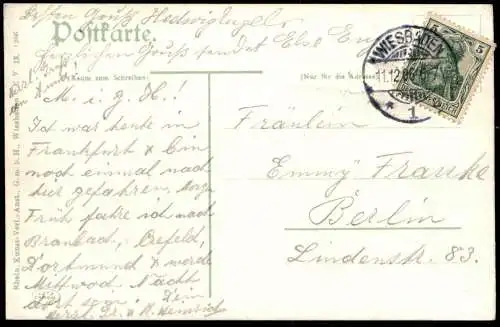 Besten Gruß Hedwig Engler
Postkarte.
Herzlichen Gruß sendet Else
(Raum zum Schreiben)
(Nur für die Adresse)
WIESBADEN
11.12.06
* 1
5
M. i. g. H.!
Ist war heute in
Frankfurt & bin
noch einmal nach
hier gefahren,
Früh fahre ich nach
Braubach, Crefeld,
Dortmund & werde
Mittwoch Nacht
dort sein. Dein
Herzl. Gr. H. Heinrich
Fräulein
Emmy Franke
Berlin
Lindenstr. 83.
Rhein. Kunst-Verl.-Anst., G. m. b. H., Wiesbaden